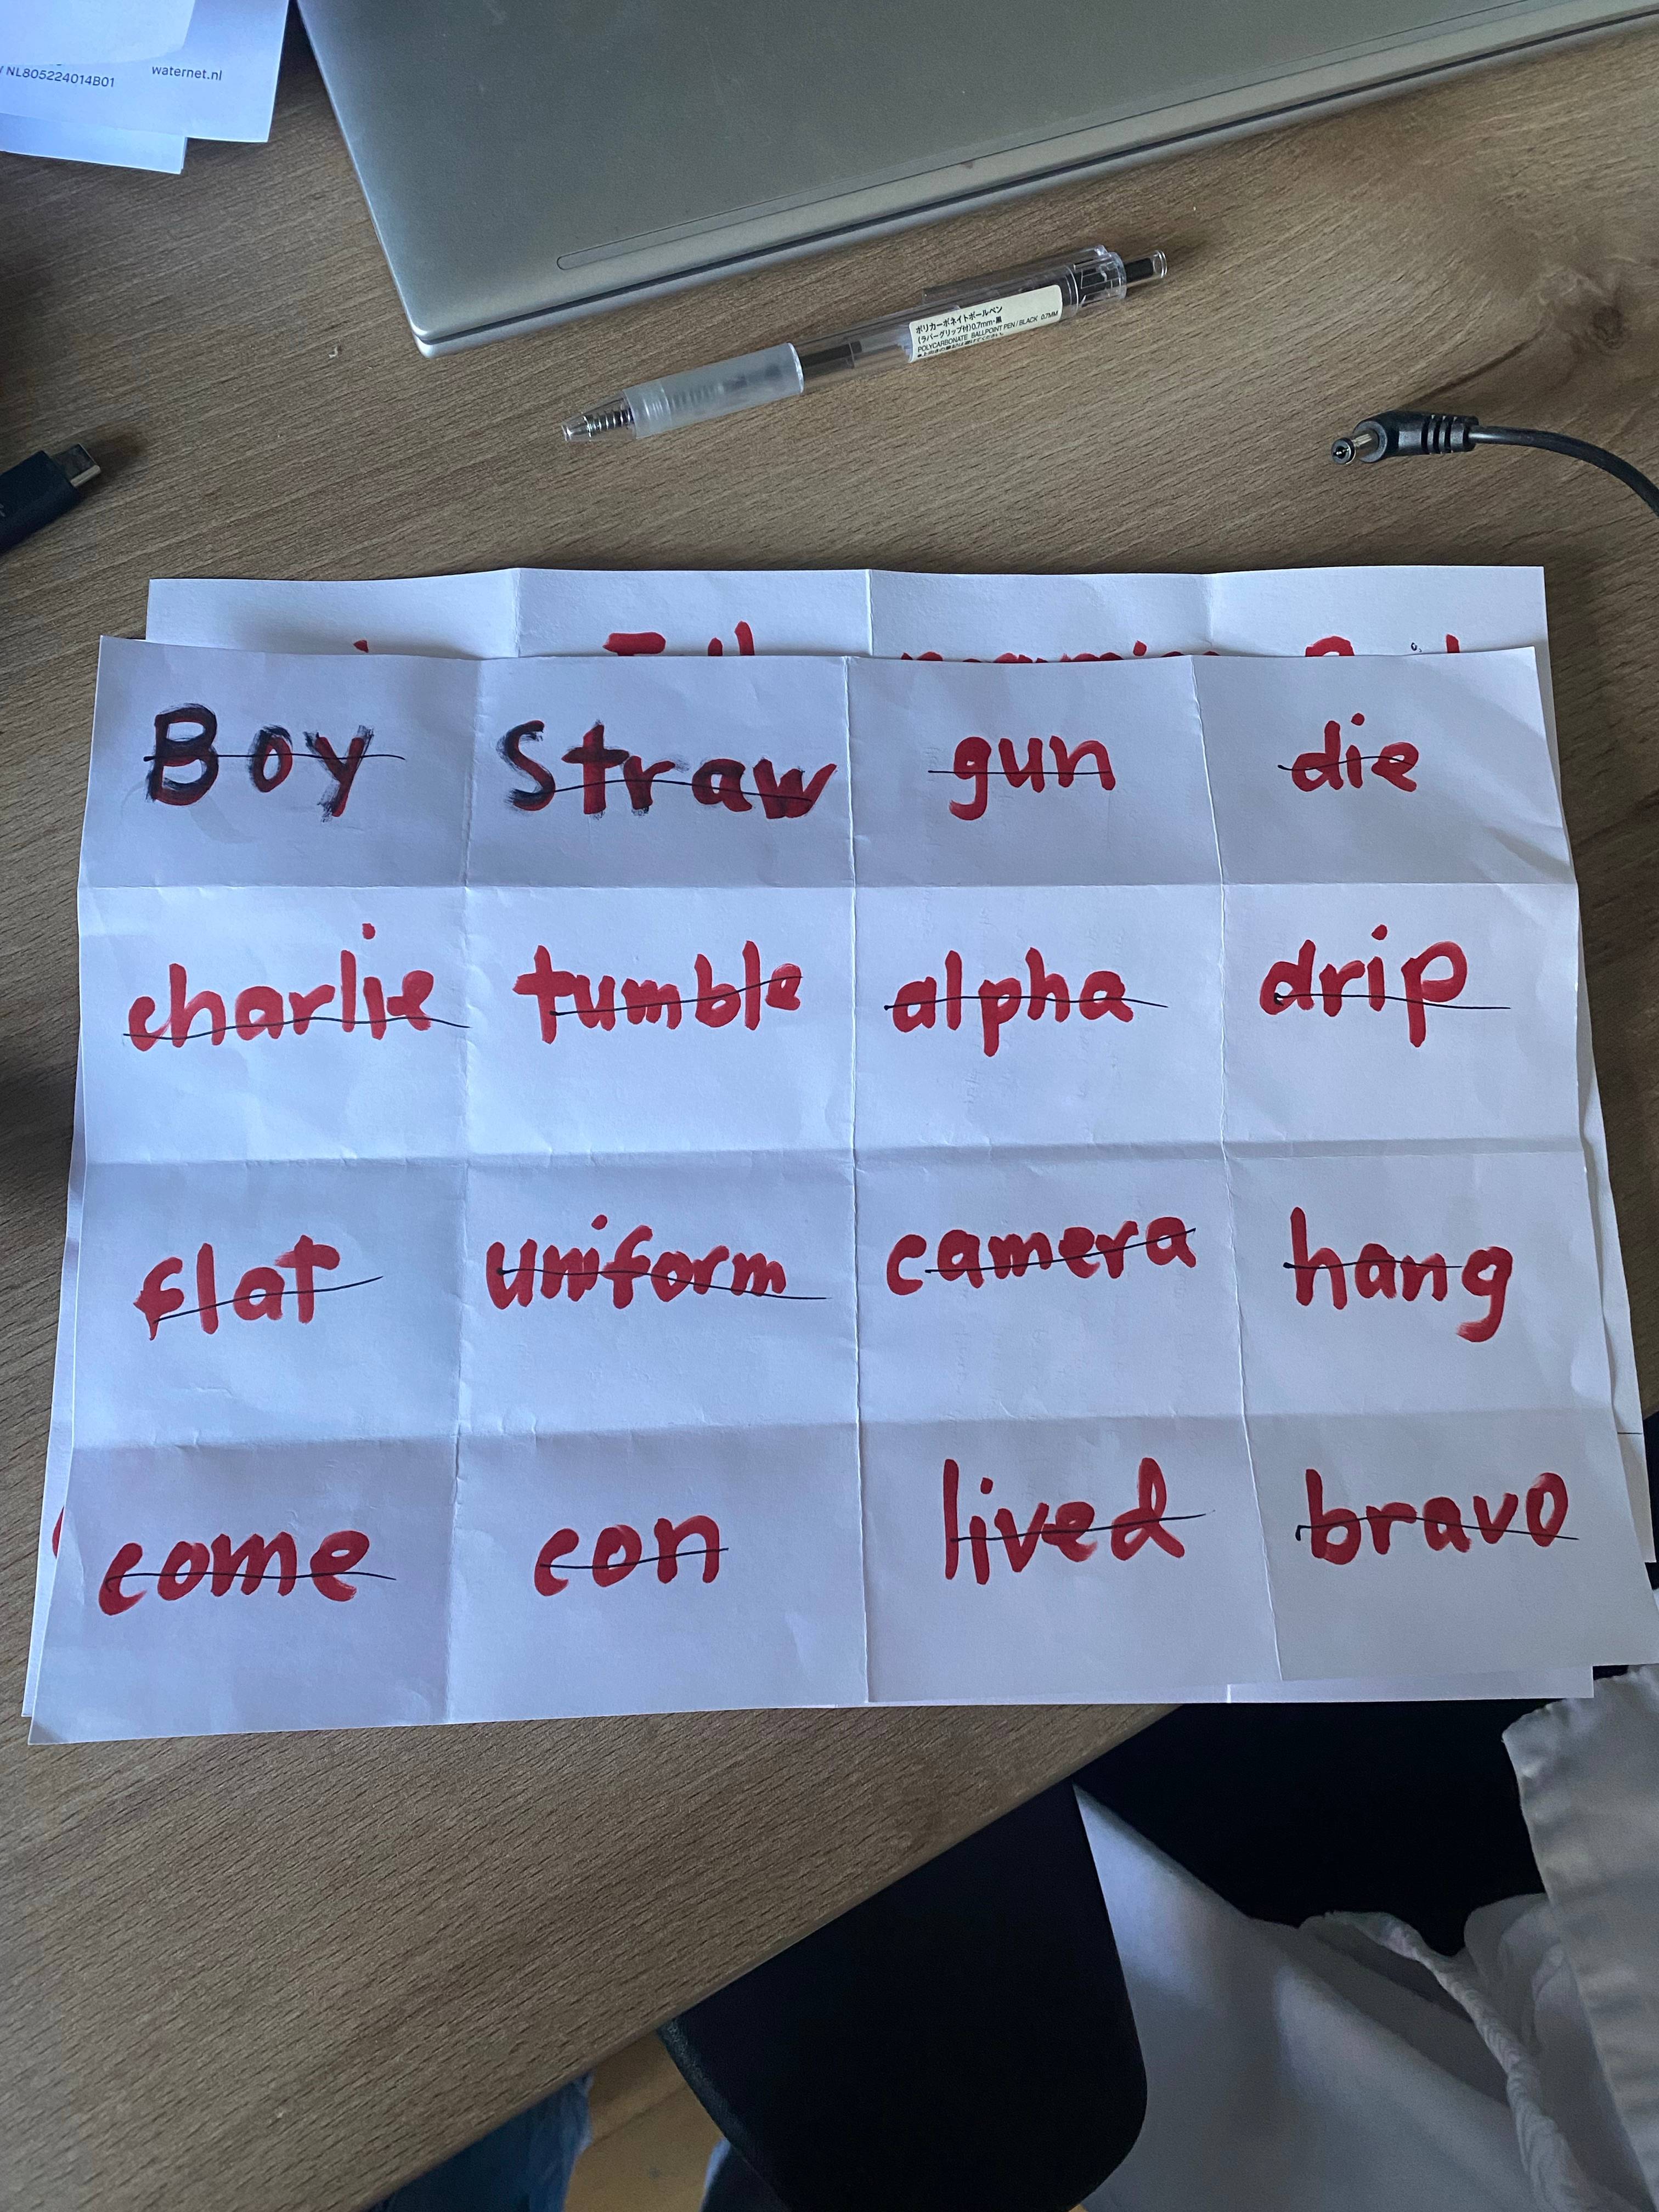 NL805224014B01 waternet.nl
ポリカーボネイトボールペン
(ラバーグリップ付)0.7mm・黒
POLYCARBONATE BALLPOINT PEN / BLACK 0.7MM
Boy Straw gun die
charlie tumble alpha drip
flat uniform camera hang
come con lived bravo